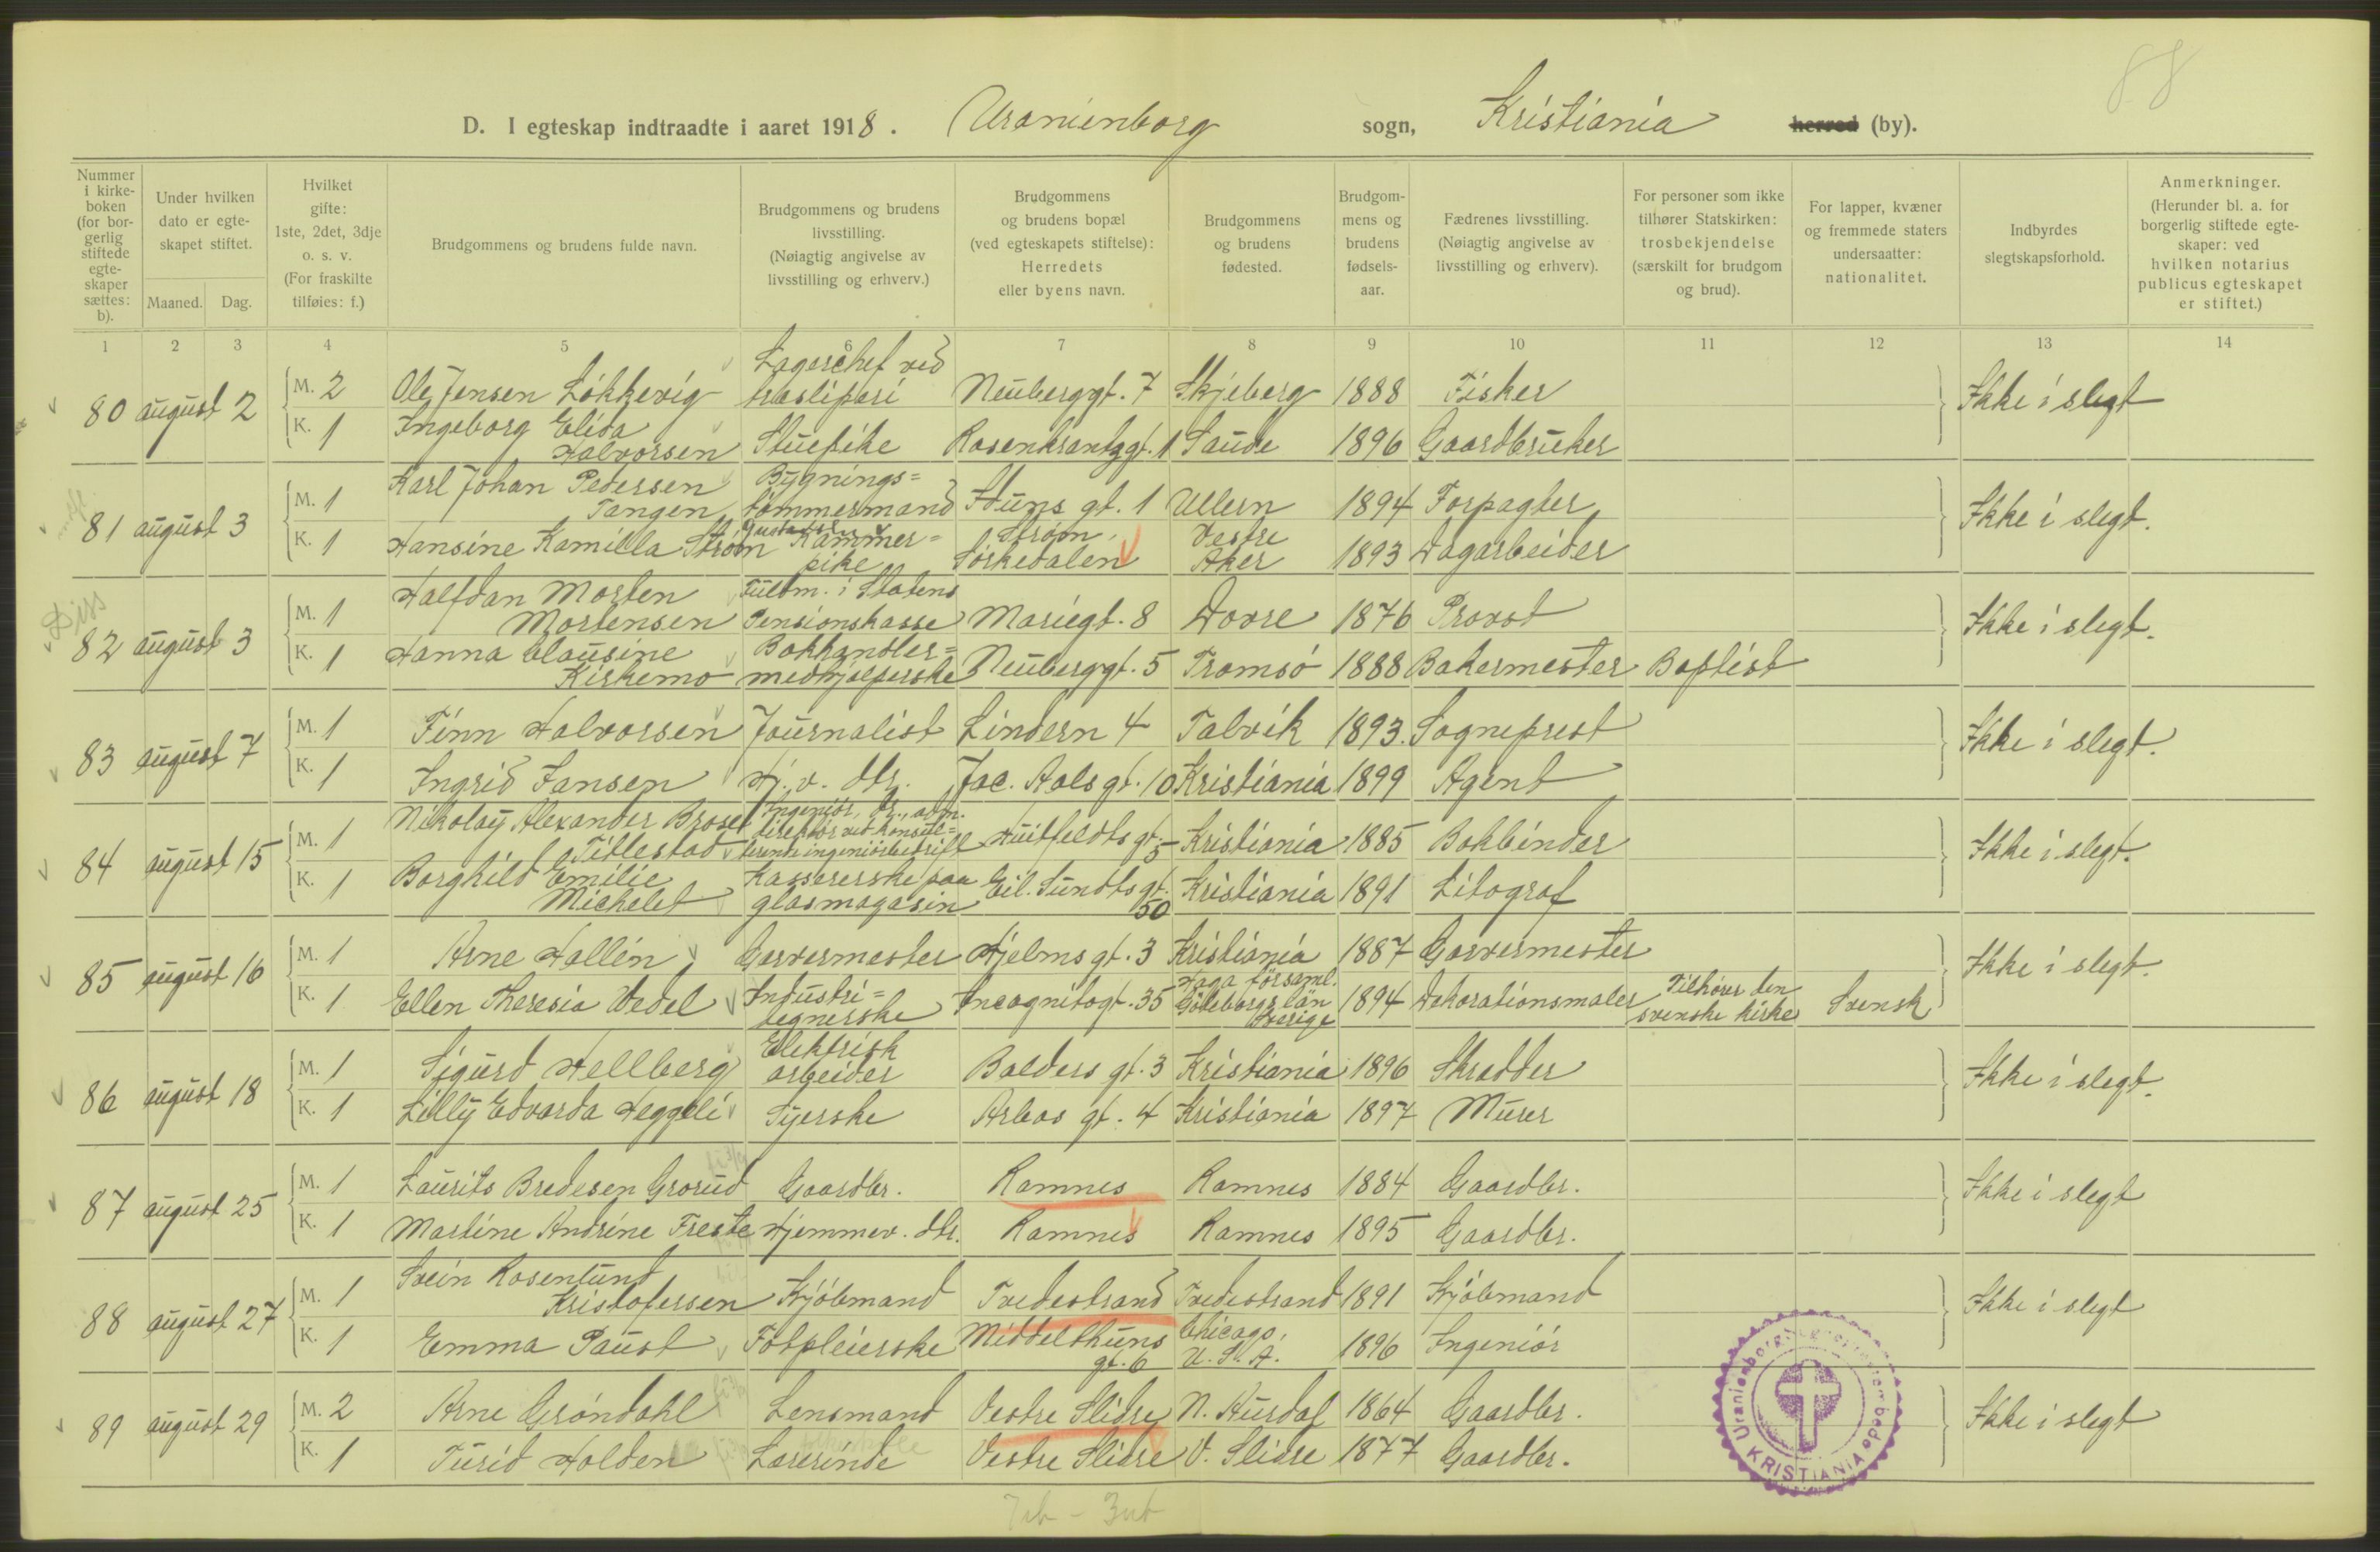 88
D. I egteskap indtraadte i aaret 1918. Uranienborg sogn, Kristiania herred (by).
Nummer i kirke-boken (for bor-gerlig stiftede egte-skaper sættes: b).
Under hvilken dato er egte-skapet stiftet.
Maaned. Dag.
Hvilket gifte: 1ste, 2det, 3dje o. s. v. (For fraskilte tilføies: f.)
Brudgommens og brudens fulde navn.
Brudgommens og brudens livsstilling. (Nøiagtig angivelse av livsstilling og erhverv.)
Brudgommens og brudens bopæl (ved egteskapets stiftelse): Herredets eller byens navn.
Brudgommens og brudens fødested.
Brudgom-mens og brudens fødsels-aar.
Fædrenes livsstilling. (Nøiagtig angivelse av livsstilling og erhverv).
For personer som ikke tilhører Statskirken: trosbekjendelse (særskilt for brudgom og brud).
For lapper, kvæner og fremmede staters undersaatter: nationalitet.
Indbyrdes slegtskapsforhold.
Anmerkninger. (Herunder bl. a. for borgerlig stiftede egte-skaper: ved hvilken notarius publicus egteskapet er stiftet.)
1 2 3 4 5 6 7 8 9 10 11 12 13 14
80 august 2 M. 2 Ole Jensen Løkkevig Lagerchef ved træsliperi Neuberggt. 7 Skjeberg 1888 Fisker Ikke i slegt
K. 1 Ingeborg Elida Halvorsen Stuepike Rosenkrantzgt. 1 Saude 1896 Gaardbruker
81 august 3 M. 1 Karl Johan Pedersen Tangen Bygnings=tømmermand Stuns gt. 1 Ullern 1894 Forpagter Ikke i slegt.
K. 1 Hansine Kamilla Strøm Kammer=pike Strøm, Sørkedalen Vestre Aker 1893 Dagarbeider
Diss
82 august 3 M. 1 Halfdan Morten Mortensen Fuldm. i Statens Pensionskasse Mariegt. 8 Dovre 1876 Provst Ikke i slegt.
K. 1 Hanna Clausine Kirkemo Bokhandler=medhjælperske Neuberggt. 5 Tromsø 1888 Bakermester Baptist
83 august 7 M. 1 Finn Halvorsen Journalist Lindern 4 Talvik 1893. Sogneprest Ikke i slegt.
K. 1 Ingrid Jansen Hj. v. dtr. Jac. Aalsgt. 10 Kristiania 1899 Agent
84 august 15 M. 1 Nikolay Alexander Brosel Tillestad Ingeniør, dr., adm. direktør ved konsul=terende ingeniørbedrift Huitfeldts gt. 5 Kristiania 1885 Bokbinder Ikke i slegt.
K. 1 Borghild Emilie Michelet Kassererske paa glasmagasin Eil. Sundts gt. 50 Kristiania 1891 Litograf
85 august 16 M. 1 Arne Hallén Garvermester Hjelms gt. 3 Kristiania 1887 Garvermester Ikke i slegt.
K. 1 Ellen Theresia Wedel Industri=tegnerske Incognitogt. 35 Haga församl. Göteborgs län Sverige 1894 Dekorationsmaler Tilhører den svenske kirke Svensk
86 august 18 M. 1 Sigurd Hellberg Elektrisk arbeider Balders gt. 3 Kristiania 1896 Skrædder Ikke i slegt.
K. 1 Lilly Edvarda Heggeli Syerske Arbos gt. 4 Kristiania 1897 Murer
87 august 25 M. 1 Laurits Bredesen Grorud Gaardbr. Ramnes Ramnes 1884 Gaardbr. Ikke i slegt
K. 1 Martine Andrine Freste Hjemmev. dtr. Ramnes Ramnes 1895 Gaardbr.
88 august 27 M. 1 Svein Rosenlund Kristofersen Kjøbmand Tvedestrand Tvedestrand 1891 Kjøbmand Ikke i slegt
K. 1 Emma Paust Fotpleierske Middelthuns gt. 6 Chicago, U. S. A. 1896 Ingeniør
89 august 29 M. 2 Arne Grøndahl Lensmand Vestre Slidre N. Aurdal 1864 Gaardbr. Ikke i slegt
K. 1 Turid Holden Lærerinde Vestre Slidre V. Slidre 1877 Gaardbr.
Uranienborg KRISTIANIA